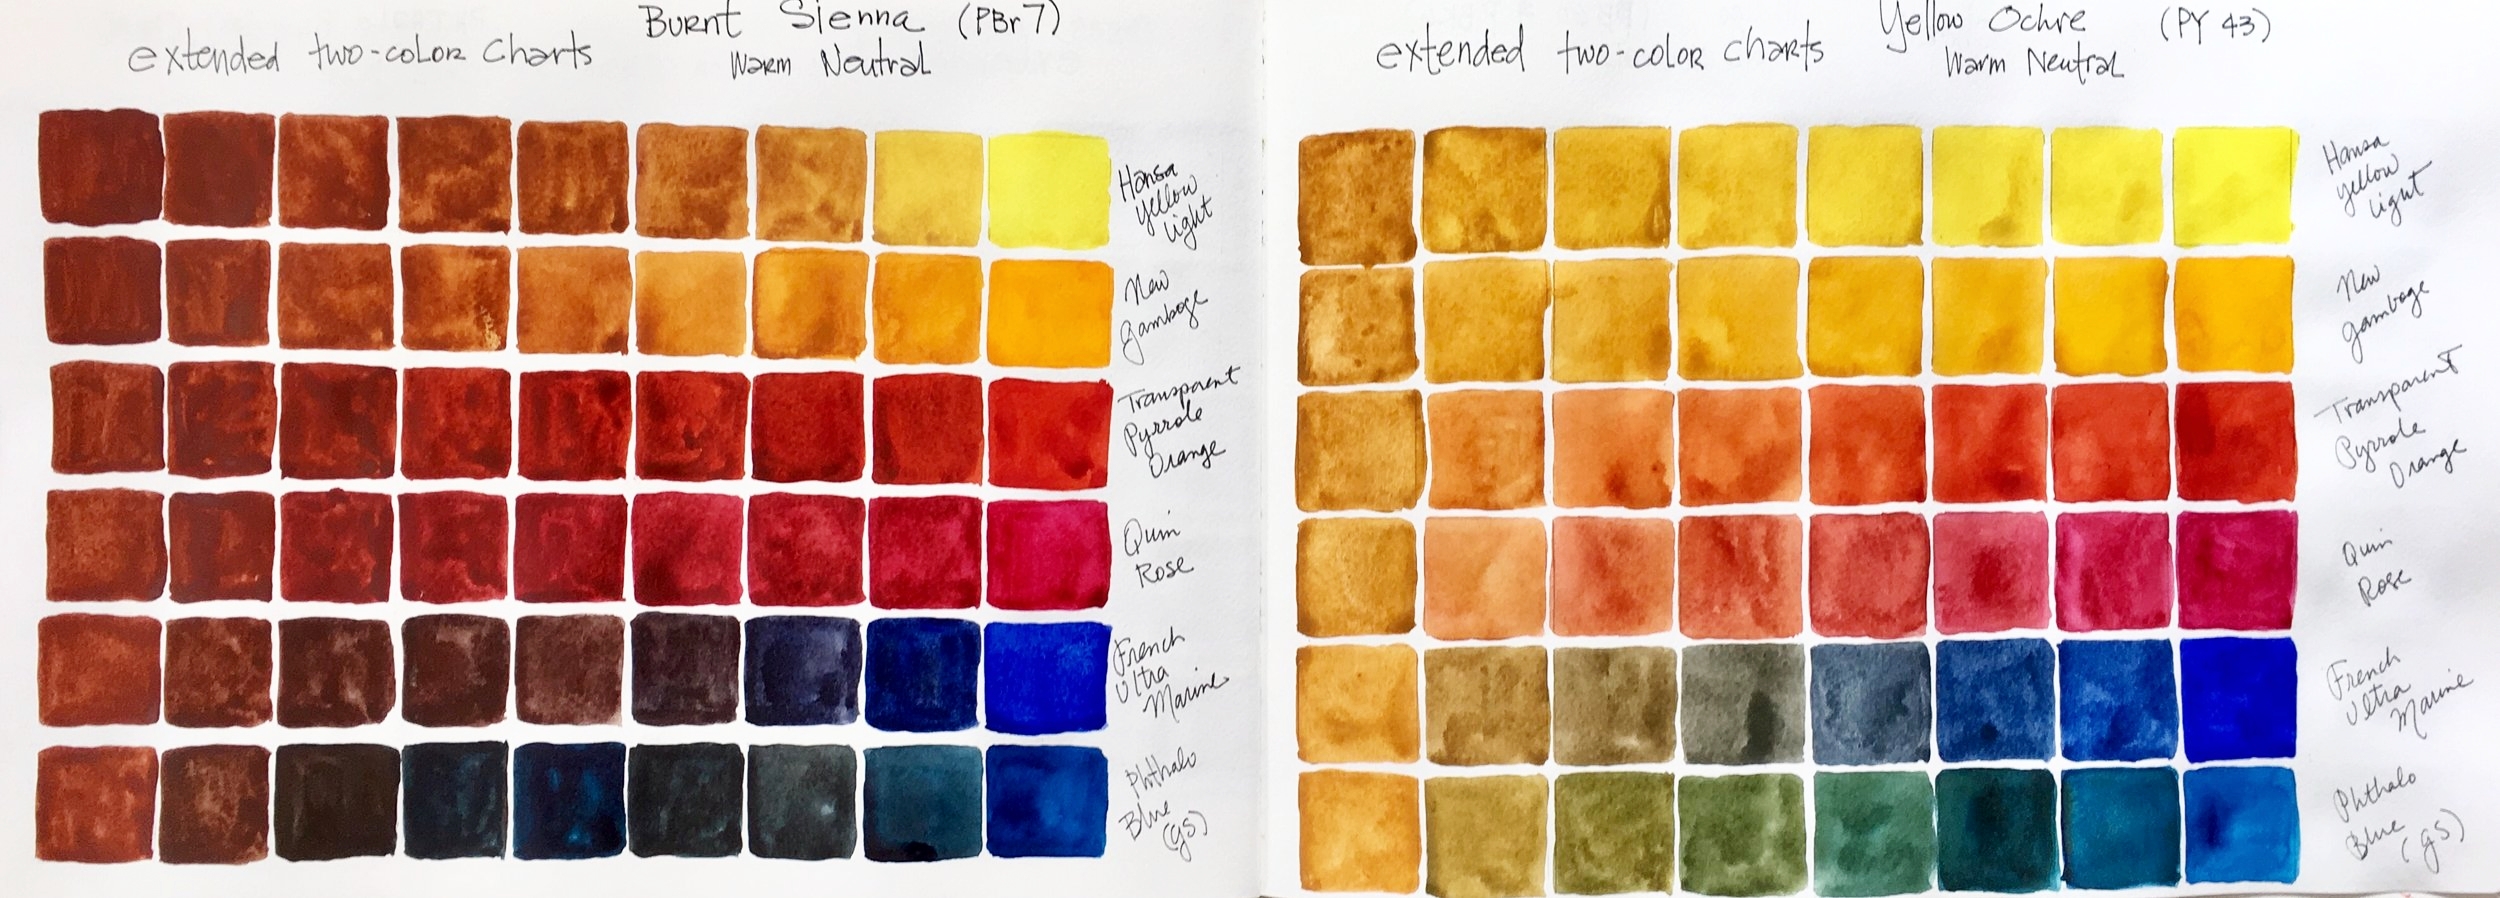 extended two-color charts
Burnt Sienna (PBr7)
Warm Neutral
Hansa
yellow
light
New
gamboge
Transparent
Pyrrole
Orange
Quin
Rose
French
Ultra
Marine
Phthalo
Blue
(gs)
extended two-color charts
Yellow Ochre (PY 43)
Warm Neutral
Hansa
yellow
light
New
gamboge
Transparent
Pyrrole
Orange
Quin
Rose
French
Ultra
Marine
Phthalo
Blue
(gs)